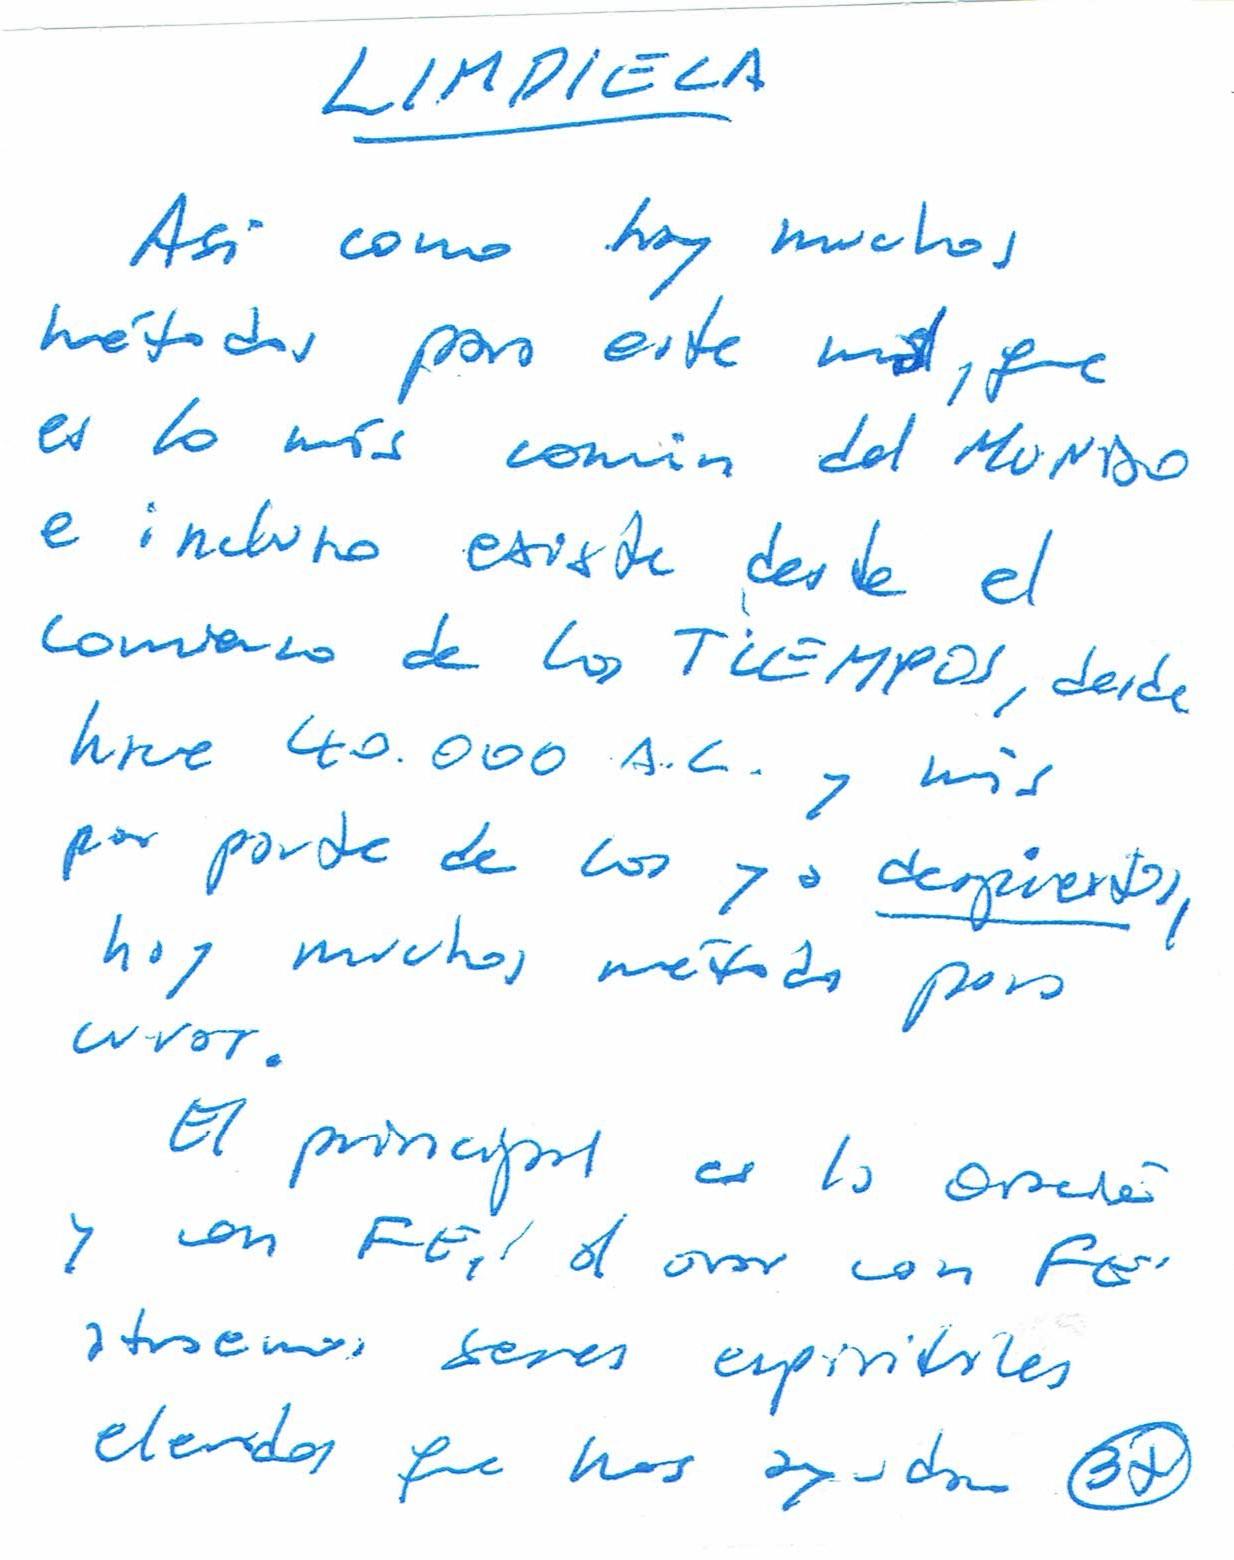 LIMPIEZA
Asi como hay muchos
métodos para este mal, que
es lo más común del MUNDO
e incluso existe desde el
comienzo de los TIEMPOS, desde
hace 40.000 A.C. y más
por parte de los ya despiertos,
hay muchos métodos para
curar.
El principal es la oración
y con FE, al orar con FE
atraemos seres espirituales
elevados que nos ayudan